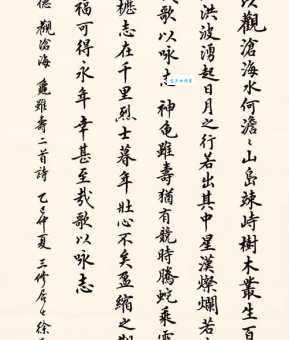 以觀滄海水何澹〻山島竦峙樹木叢生百
洪波湧起日月之行若出其中星漢燦爛若
哉歌以咏志 神龜雖壽猶有競時騰蛇乘霧
櫪志在千里烈士暮年壯心不矣盈縮之
福可得永年幸甚至哉歌以咏志
德 觀滄海 龜雖壽二首詩 乙巳仲夏 三修居士徐